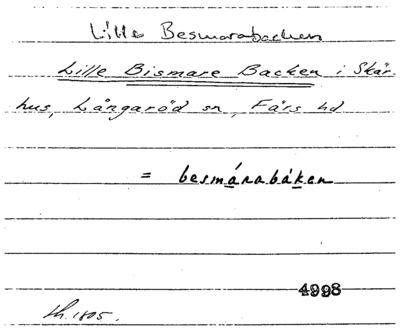 Lille Besmarabacken
Lille Bismare Backen i Skär-
hus, Långaröd sn, Färs hd
= besmárabáken
4998
lh. 1805.